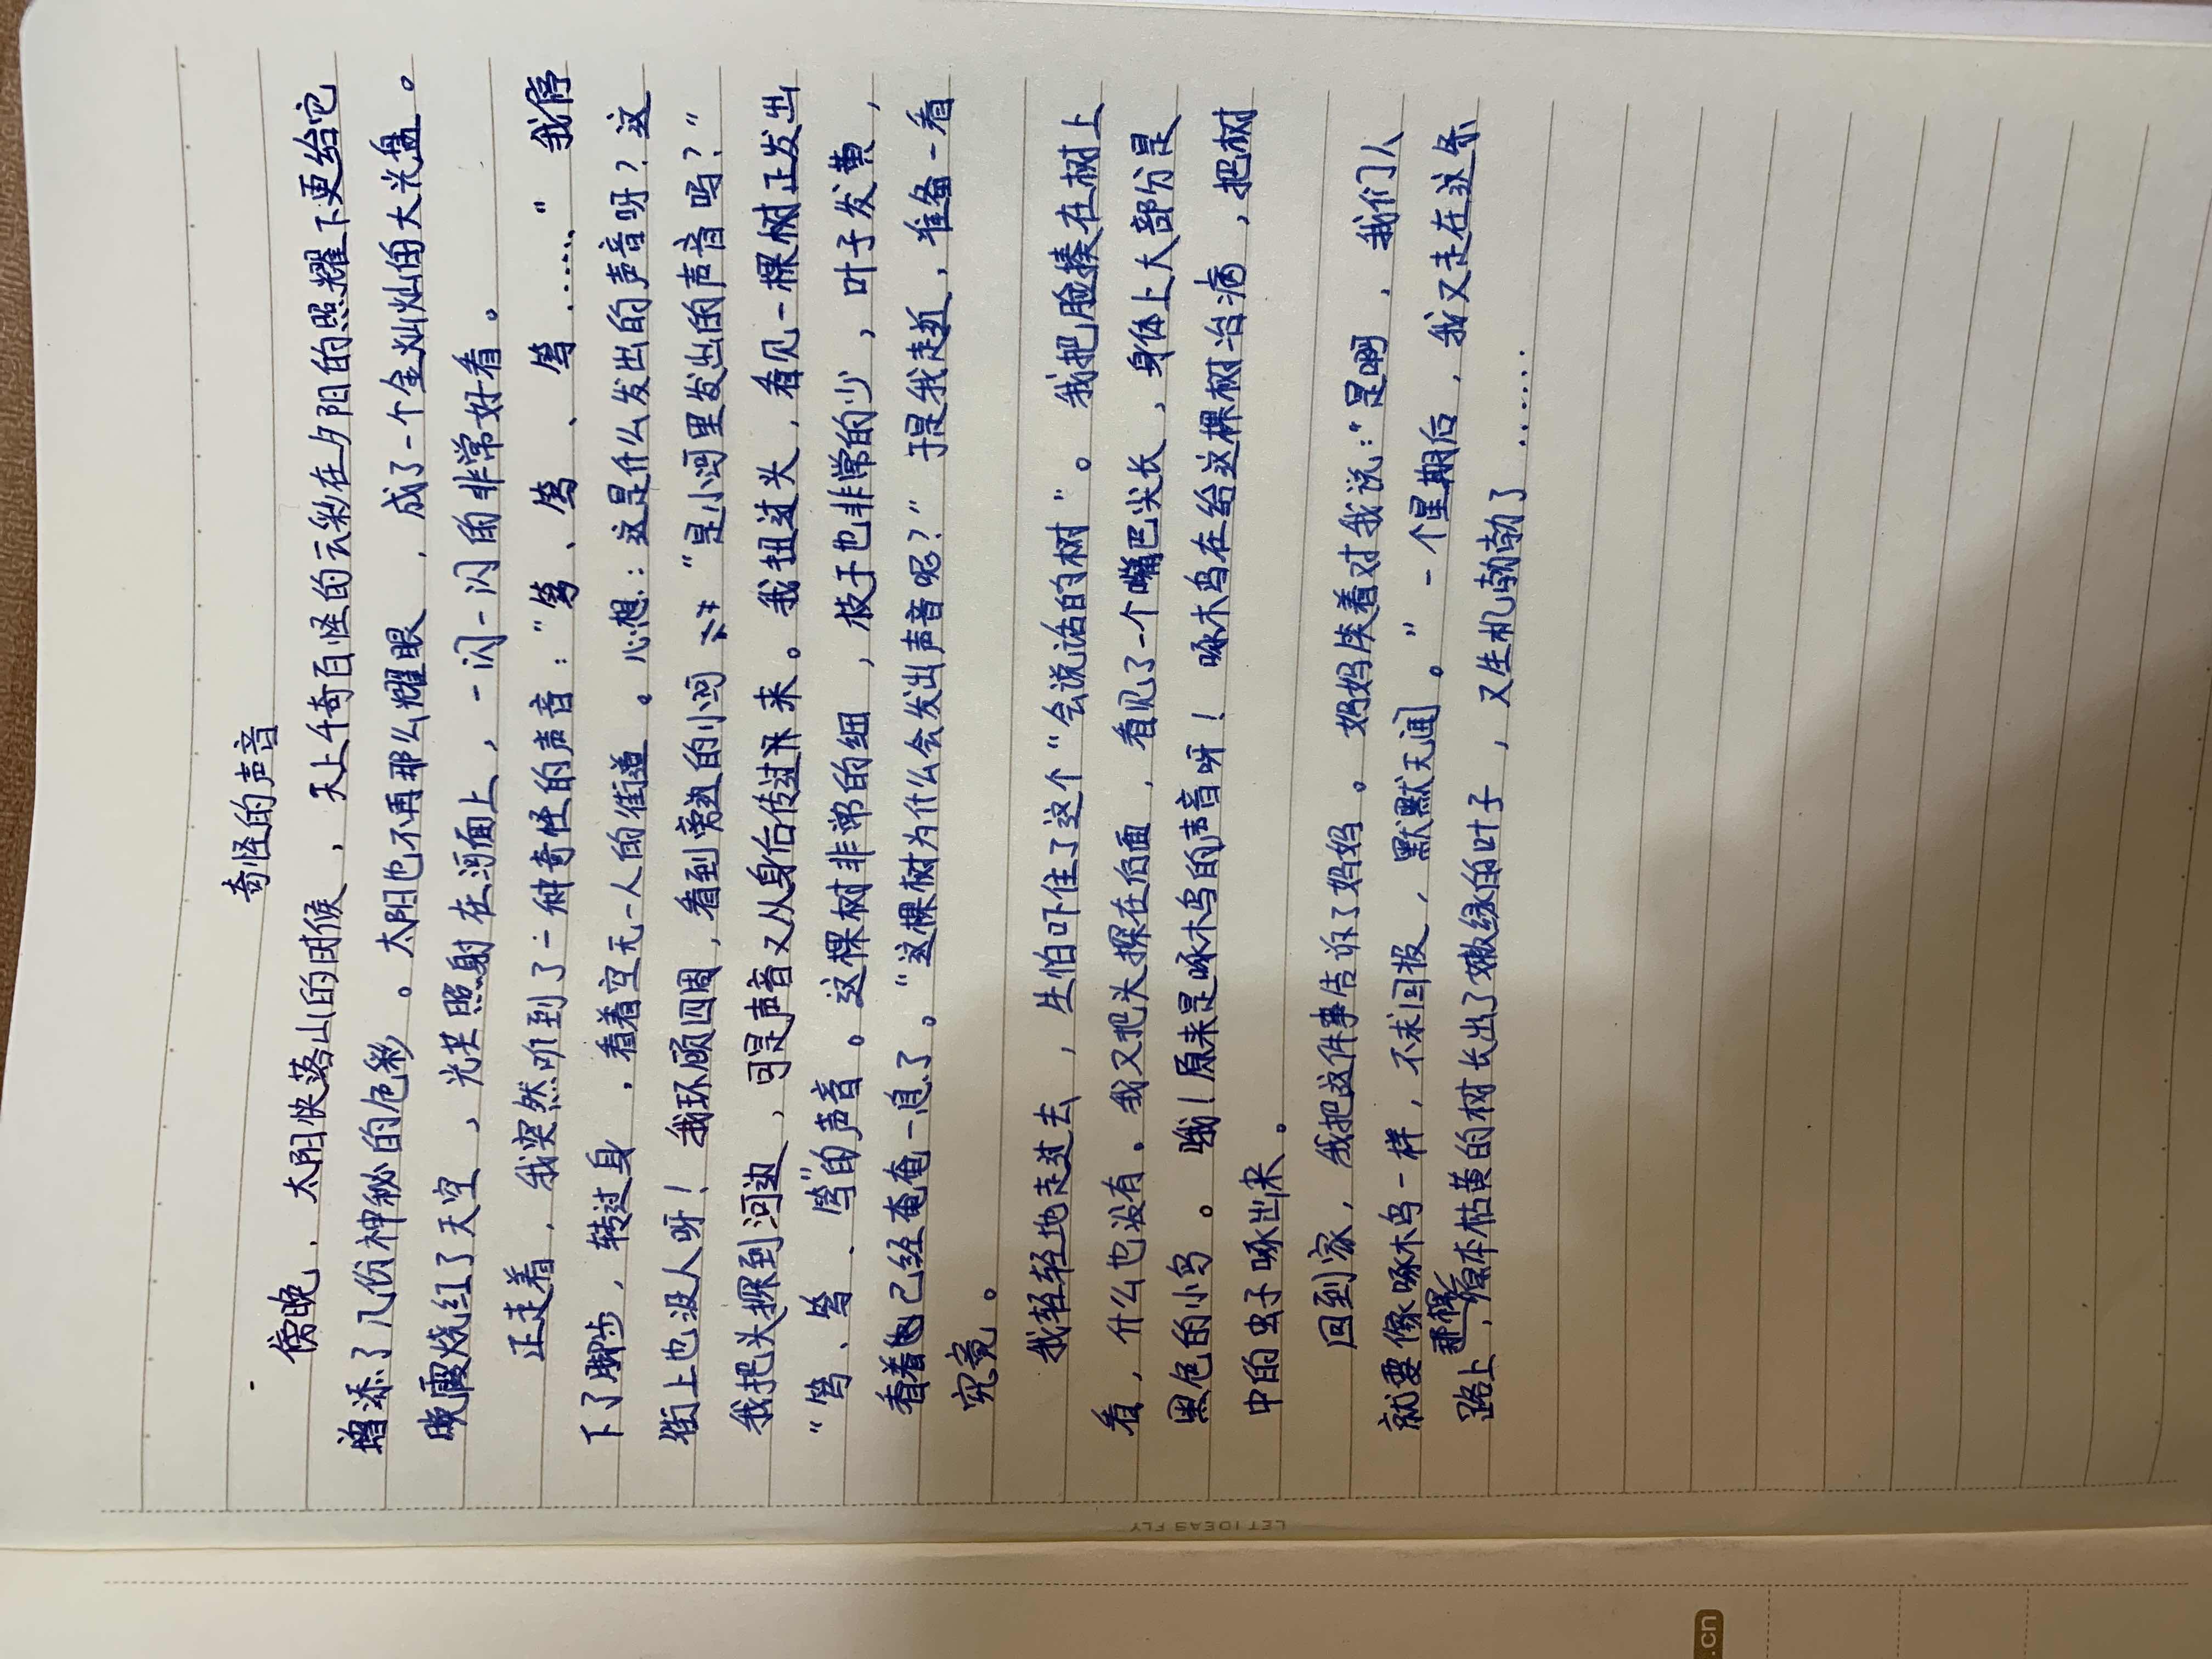 奇怪的声音
傍晚，太阳快落山的时候，天上千奇百怪的云彩在夕阳的照耀下更给它
增添了几份神秘的色彩。太阳也不再那么耀眼，成了一个金灿灿的大光盘。
晚霞烧红了天空，光芒照射在河面上，一闪一闪的非常好看。
正走着，我突然听到了一种奇怪的声音：“笃、笃、笃……”我停
下了脚步，转过身，看着空无一人的街道。心想：这是什么发出的声音呀？这
街上也没人呀！我环顾四周，看到旁边的小河“是小河里发出的声音吗？”
我把头探到河边，可是声音又从身后传过来。我扭过头，看见一棵树正发出
“笃、笃、笃”的声音。这棵树非常的细，枝干也非常的少，叶子发黄，
看着已经奄奄一息了。“这棵树为什么会发出声音呢？”于是我走近，准备一看
究竟。
我轻轻地走过去，生怕吓住了这个“会说话的树”。我把脸揍在树上
看，什么也没有。我又把头探在后面，看见了一个嘴巴尖长，身体上大部分是
黑色的小鸟。哦！原来是啄木鸟的声音呀！啄木鸟在给这棵树治病，把树
中的虫子啄出来。
回到家，我把这件事告诉了妈妈。妈妈笑着对我说：“是啊，我们人
就要像啄木鸟一样，不求回报，默默无闻。”一个星期后，我又走在这条
路上，那棵原本枯黄的树长出了嫩绿的叶子，又生机勃勃了……
LET IDEAS FLY
.cn